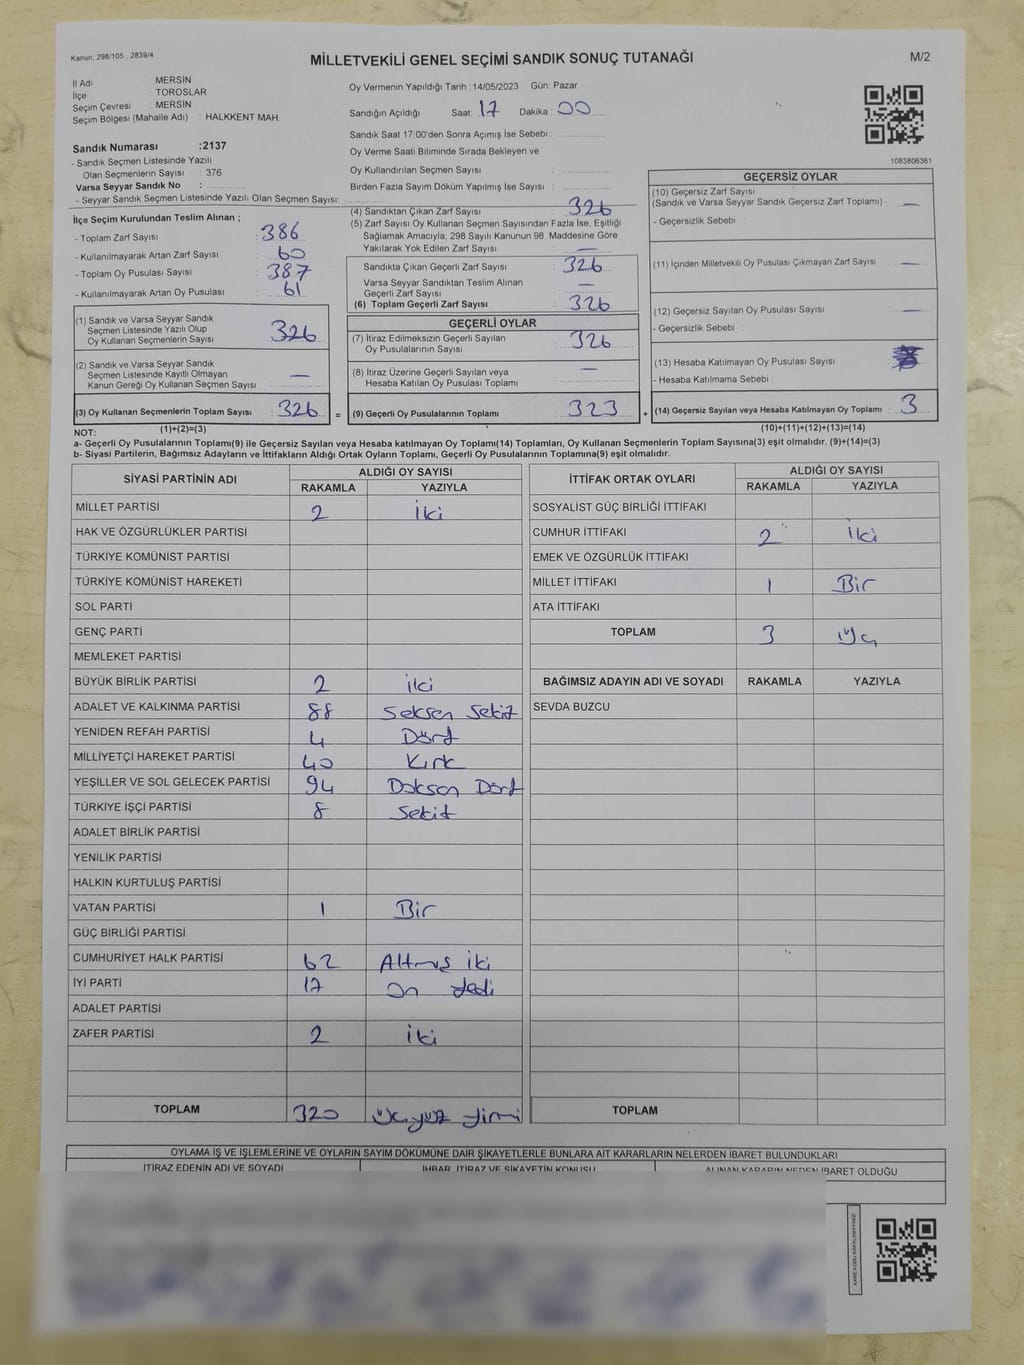 Kanun: 298/105 , 2839/4
MİLLETVEKİLİ GENEL SEÇİMİ SANDIK SONUÇ TUTANAĞI
M/2
İl Adı : MERSİN
İlçe : TOROSLAR
Seçim Çevresi : MERSİN
Seçim Bölgesi (Mahalle Adı) : HALKKENT MAH.
Oy Vermenin Yapıldığı Tarih : 14/05/2023 Gün: Pazar
Sandığın Açıldığı Saat: 17 Dakika : 00
Sandık Saat 17:00'den Sonra Açımış İse Sebebi :
Oy Verme Saati Bitiminde Sırada Bekleyen ve
Oy Kullandırılan Seçmen Sayısı :
Birden Fazla Sayım Döküm Yapılmış İse Sayısı :
Sandık Numarası :2137
- Sandık Seçmen Listesinde Yazılı
Olan Seçmenlerin Sayısı : 376
Varsa Seyyar Sandık No :
- Seyyar Sandık Seçmen Listesinde Yazılı Olan Seçmen Sayısı:
1083806361
İlçe Seçim Kurulundan Teslim Alınan ;
- Toplam Zarf Sayısı : 386
- Kullanılmayarak Artan Zarf Sayısı : 60
- Toplam Oy Pusulası Sayısı : 387
- Kullanılmayarak Artan Oy Pusulası : 61
(1) Sandık ve Varsa Seyyar Sandık
Seçmen Listesinde Yazılı Olup
Oy Kullanan Seçmenlerin Sayısı : 326
(2) Sandık ve Varsa Seyyar Sandık
Seçmen Listesinde Kayıtlı Olmayan
Kanun Gereği Oy Kullanan Seçmen Sayısı : —
(3) Oy Kullanan Seçmenlerin Toplam Sayısı : 326 =
(1)+(2)=(3)
(4) Sandıktan Çıkan Zarf Sayısı : 326
(5) Zarf Sayısı Oy Kullanan Seçmen Sayısından Fazla İse, Eşitliği
Sağlamak Amacıyla, 298 Sayılı Kanunun 98. Maddesine Göre
Yakılarak Yok Edilen Zarf Sayısı : —
Sandıkta Çıkan Geçerli Zarf Sayısı : 326
Varsa Seyyar Sandıktan Teslim Alınan
Geçerli Zarf Sayısı : —
(6) Toplam Geçerli Zarf Sayısı : 326
GEÇERLİ OYLAR
(7) İtiraz Edilmeksizin Geçerli Sayılan
Oy Pusulalarının Sayısı : 326
(8) İtiraz Üzerine Geçerli Sayılan veya
Hesaba Katılan Oy Pusulası Toplamı : —
(9) Geçerli Oy Pusulalarının Toplamı : 323 +
GEÇERSİZ OYLAR
(10) Geçersiz Zarf Sayısı
(Sandık ve Varsa Seyyar Sandık Geçersiz Zarf Toplamı) : —
- Geçersizlik Sebebi :
(11) İçinden Milletvekili Oy Pusulası Çıkmayan Zarf Sayısı : —
(12) Geçersiz Sayılan Oy Pusulası Sayısı : —
- Geçersizlik Sebebi :
(13) Hesaba Katılmayan Oy Pusulası Sayısı
- Hesaba Katılmama Sebebi :
(14) Geçersiz Sayılan veya Hesaba Katılmayan Oy Toplamı : 3
(10)+(11)+(12)+(13)=(14)
NOT:
a- Geçerli Oy Pusulalarının Toplamı(9) ile Geçersiz Sayılan veya Hesaba katılmayan Oy Toplamı(14) Toplamları, Oy Kullanan Seçmenlerin Toplam Sayısına(3) eşit olmalıdır. (9)+(14)=(3)
b- Siyasi Partilerin, Bağımsız Adayların ve İttifakların Aldığı Ortak Oyların Toplamı, Geçerli Oy Pusulalarının Toplamına(9) eşit olmalıdır.
SİYASİ PARTİNİN ADI ALDIĞI OY SAYISI
RAKAMLA YAZIYLA
MİLLET PARTİSİ 2 İki
HAK VE ÖZGÜRLÜKLER PARTİSİ
TÜRKİYE KOMÜNİST PARTİSİ
TÜRKİYE KOMÜNİST HAREKETİ
SOL PARTİ
GENÇ PARTİ
MEMLEKET PARTİSİ
BÜYÜK BİRLİK PARTİSİ 2 iki
ADALET VE KALKINMA PARTİSİ 88 Seksen Sekiz
YENİDEN REFAH PARTİSİ 4 Dört
MİLLİYETÇİ HAREKET PARTİSİ 40 Kırk
YEŞİLLER VE SOL GELECEK PARTİSİ 94 Doksan Dört
TÜRKİYE İŞÇİ PARTİSİ 8 Sekiz
ADALET BİRLİK PARTİSİ
YENİLİK PARTİSİ
HALKIN KURTULUŞ PARTİSİ
VATAN PARTİSİ 1 Bir
GÜÇ BİRLİĞİ PARTİSİ
CUMHURİYET HALK PARTİSİ 62 Altmış iki
İYİ PARTİ 17 On Yedi
ADALET PARTİSİ
ZAFER PARTİSİ 2 iki
TOPLAM 320 üçyüz yirmi
İTTİFAK ORTAK OYLARI ALDIĞI OY SAYISI
RAKAMLA YAZIYLA
SOSYALİST GÜÇ BİRLİĞİ İTTİFAKI
CUMHUR İTTİFAKI 2 iki
EMEK VE ÖZGÜRLÜK İTTİFAKI
MİLLET İTTİFAKI 1 Bir
ATA İTTİFAKI
TOPLAM 3 Üç
BAĞIMSIZ ADAYIN ADI VE SOYADI RAKAMLA YAZIYLA
SEVDA BUZCU
TOPLAM
OYLAMA İŞ VE İŞLEMLERİNE VE OYLARIN SAYIM DÖKÜMÜNE DAİR ŞİKAYETLERLE BUNLARA AİT KARARLARIN NELERDEN İBARET BULUNDUKLARI
İTİRAZ EDENİN ADI VE SOYADI İHBAR, İTİRAZ VE ŞİKAYETİN KONUSU ALINAN KARARIN NEDEN İBARET OLDUĞU